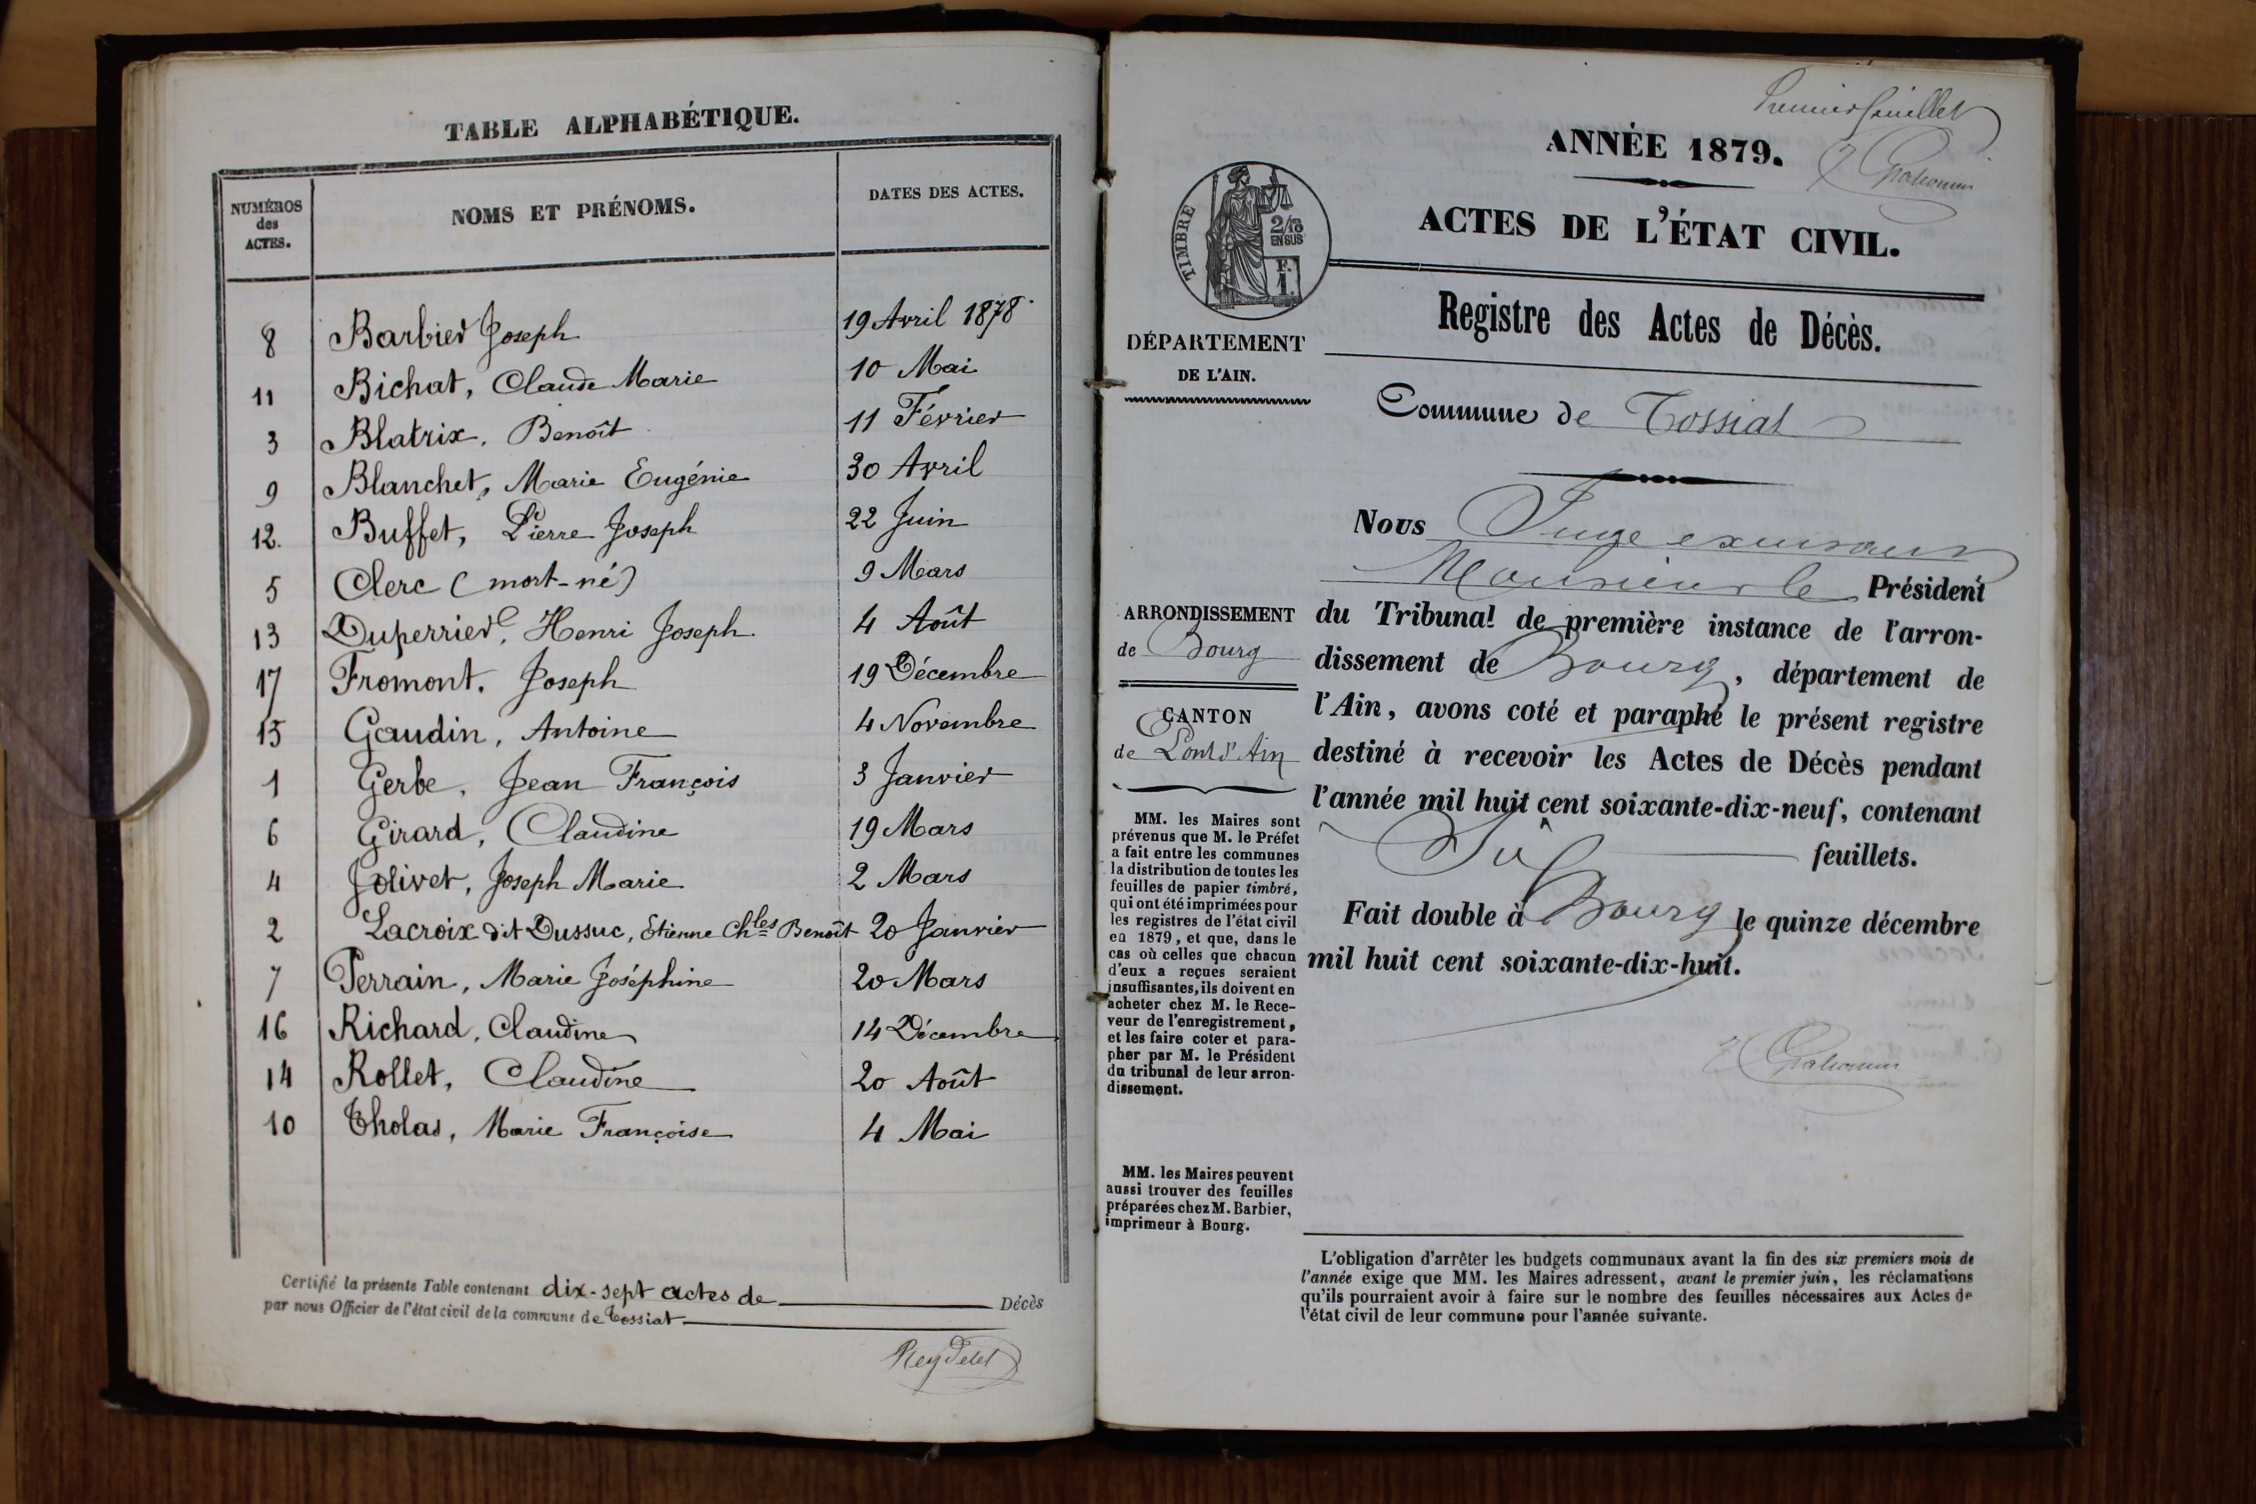 TABLE ALPHABÉTIQUE.
NUMÉROS des ACTES. NOMS ET PRÉNOMS. DATES DES ACTES.
8 Barbier Joseph 19 Avril 1878
11 Bichat, Claude Marie 10 Mai
3 Blatrix, Benoît 11 Février
9 Blanchet, Marie Eugénie 30 Avril
12. Buffet, Pierre Joseph 22 Juin
5 Clerc (mort-né) 9 Mars
13 Duperrier, Henri Joseph 4 Août
17 Fromont, Joseph 19 Décembre
15 Gaudin, Antoine 4 Novembre
1 Gerbe, Jean François 3 Janvier
6 Girard, Claudine 19 Mars
4 Jolivet, Joseph Marie 2 Mars
2 Lacroix dit Dussuc, Etienne Chles Benoît 20 Janvier
7 Perrain, Marie Joséphine 20 Mars
16 Richard, Claudine 14 Décembre
14 Rollet, Claudine 20 Août
10 Tholas, Marie Françoise 4 Mai
Certifié la présente Table contenant dix-sept actes de Décès
par nous Officier de l'état civil de la commune de Tossiat
Reydelet
Premier feuillet
ANNÉE 1879.
ACTES DE L'ÉTAT CIVIL.
TIMBRE
2/10
EN SUS
F.
1.
DÉPARTEMENT
DE L'AIN.
Registre des Actes de Décès.
Commune de Tossiat
ARRONDISSEMENT
de Bourg
CANTON
de Pont d'Ain
MM. les Maires sont
prévenus que M. le Préfet
a fait entre les communes
la distribution de toutes les
feuilles de papier timbré,
qui ont été imprimées pour
les registres de l'état civil
en 1879, et que, dans le
cas où celles que chacun
d'eux a reçues seraient
insuffisantes, ils doivent en
acheter chez M. le Rece-
veur de l'enregistrement,
et les faire coter et para-
pher par M. le Président
du tribunal de leur arron-
dissement.
MM. les Maires peuvent
aussi trouver des feuilles
préparées chez M. Barbier,
imprimeur à Bourg.
Nous Juge
Monsieur le Président
du Tribunal de première instance de l'arron-
dissement de Bourg, département de
l'Ain, avons coté et paraphé le présent registre
destiné à recevoir les Actes de Décès pendant
l'année mil huit cent soixante-dix-neuf, contenant
feuillets.
Fait double à Bourg le quinze décembre
mil huit cent soixante-dix-huit.
L'obligation d'arrêter les budgets communaux avant la fin des six premiers mois de
l'année exige que MM. les Maires adressent, avant le premier juin, les réclamations
qu'ils pourraient avoir à faire sur le nombre des feuilles nécessaires aux Actes de
l'état civil de leur commune pour l'année suivante.